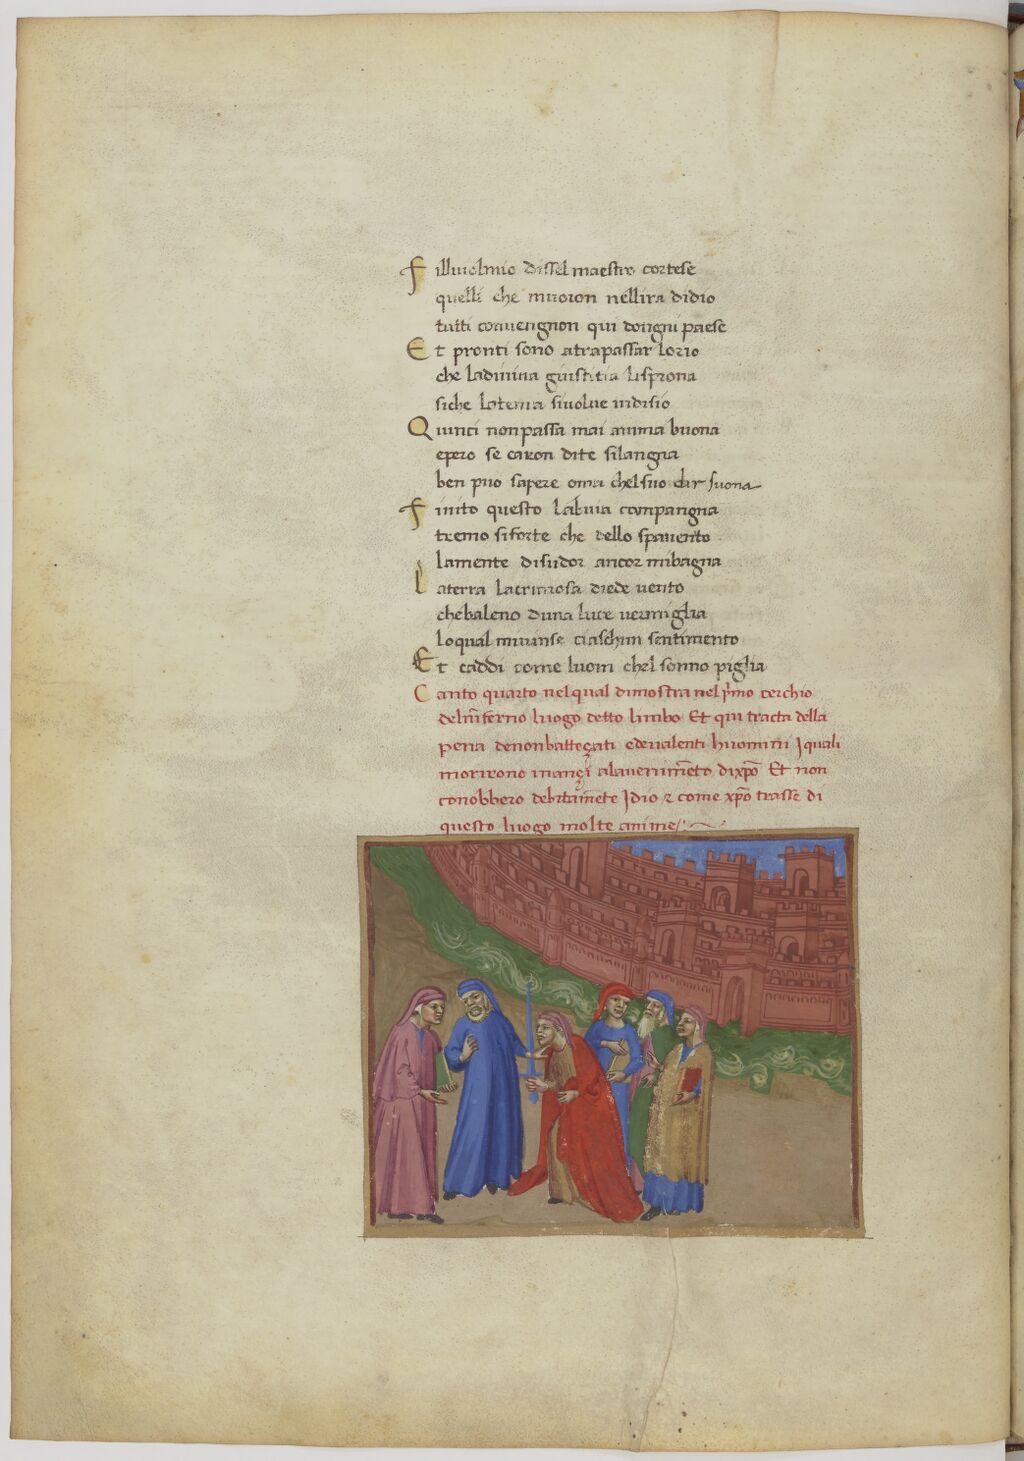 Filluiolmio dissel maestro cortese
quelli che muoion nellira didio
tutti conuengnon qui dongni paese
Et pronti sono atrapassar lorio
che ladiuina giustitia lisprona
siche latema siuolue indisio
Quinci nonpassa mai anima buona
epero se caron dite silangna
ben puo sapere omai chelsuo dir suona
Finito questo labuia compangna
tremo siforte che dello spauento
lamente disudor ancor mibagna
Laterra lacrimosa diede uento
chebaleno duna luce uermiglia
loqual miuinse ciaschun sentimento
Et caddi come luom chel sonno piglia
Canto quarto nelqual dimostra nel p̃mo cerchio
delinferno luogo detto limbo Et qui tracta della
pena denonbatteçati edeualenti huomini Iquali
morirono inançi alauenimẽto dixp̃o Et non
conobbero debitamẽte Idio ⁊ come xp̃o trasse di
questo luogo molte anime